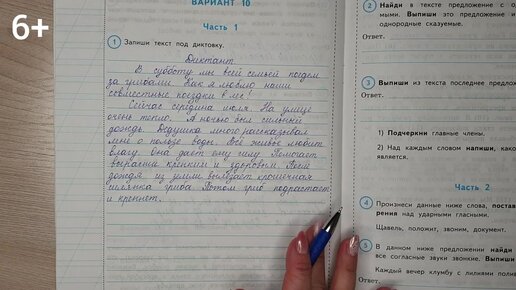 6+
ВАРИАНТ 10
Часть 1
1 Запиши текст под диктовку.
Диктант
В субботу мы всей семьей поедем
за грибами. Как я люблю наши
совместные поездки в лес!
Сейчас середина июля. На улице
очень тепло. А ночью был сильный
дождь. Дедушка много рассказывал
мне о пользе воды. Всё живое любит
влагу. Она даёт ему силу. Помогает
вырасти крепким и здоровым. После
дождя из земли вылезает крошечная
шляпка гриба. Потом гриб подрастает
и крепнет.
2 Найди в тексте предложение с од
мыми. Выпиши это предложение и
однородные сказуемые.
Ответ.
3 Выпиши из текста последнее предлож
Ответ.
1) Подчеркни главные члены.
2) Над каждым словом напиши, како
является.
Часть 2
4 Произнеси данные ниже слова, постав
рения над ударными гласными.
Щавель, положит, звоним, документ.
5 В данном ниже предложении найди
все согласные звуки звонкие. Выпиши
Каждый вечер клумбу с лилиями полив
Ответ.